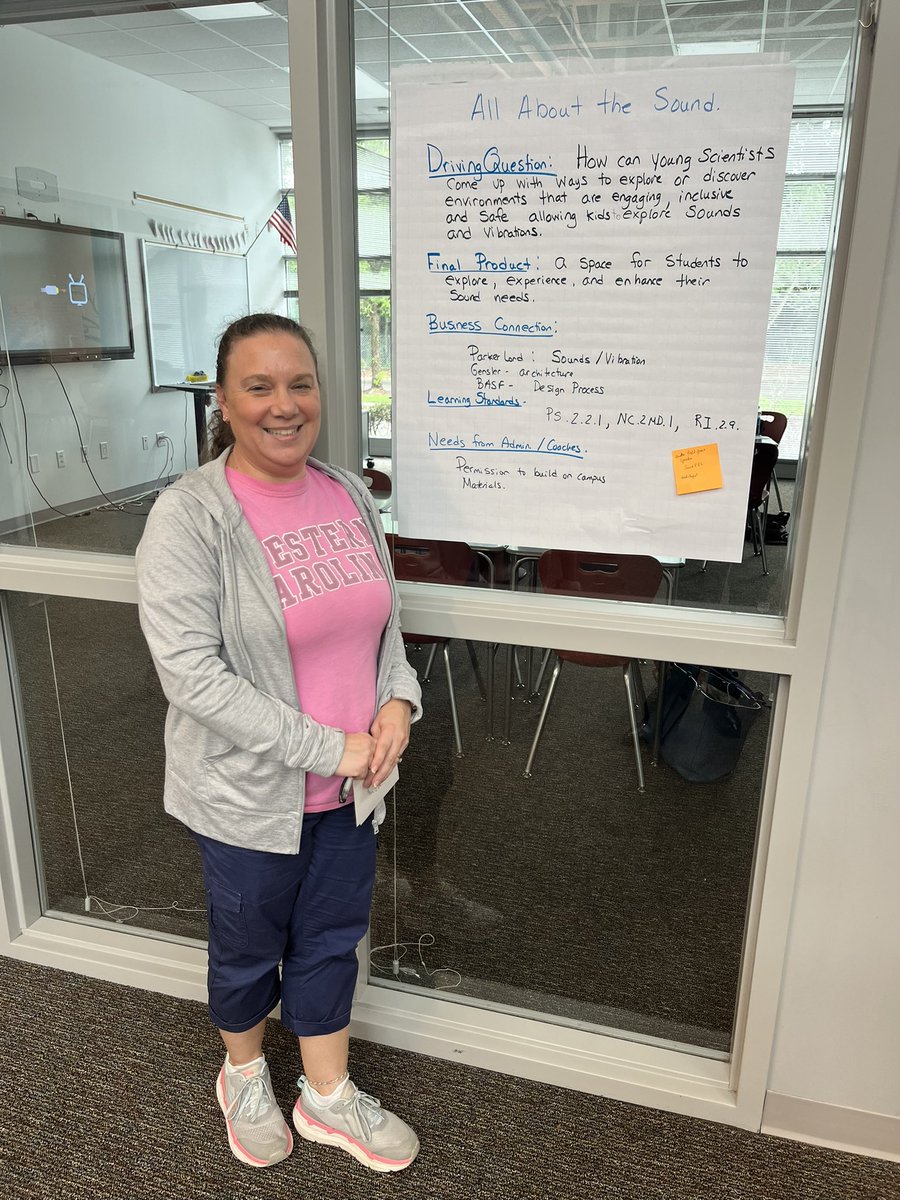 All About the Sound.
Driving Question: How can young Scientists
Come up with ways to explore or discover
environments that are engaging, inclusive
and Safe allowing kids to explore Sounds
and vibrations.
Final Product: a space for Students to
explore, experience, and enhance their
Sound needs.
Business Connection:
Parker Lord : Sounds/Vibration
Gensler - architecture
BASF - Design Process
Learning Standards.
PS.2.2.1, NC.2.MD.1, RI.2.9.
Needs from Admin/Coaches
Permission to build on campus
Materials.
ESTERN
AROLIN